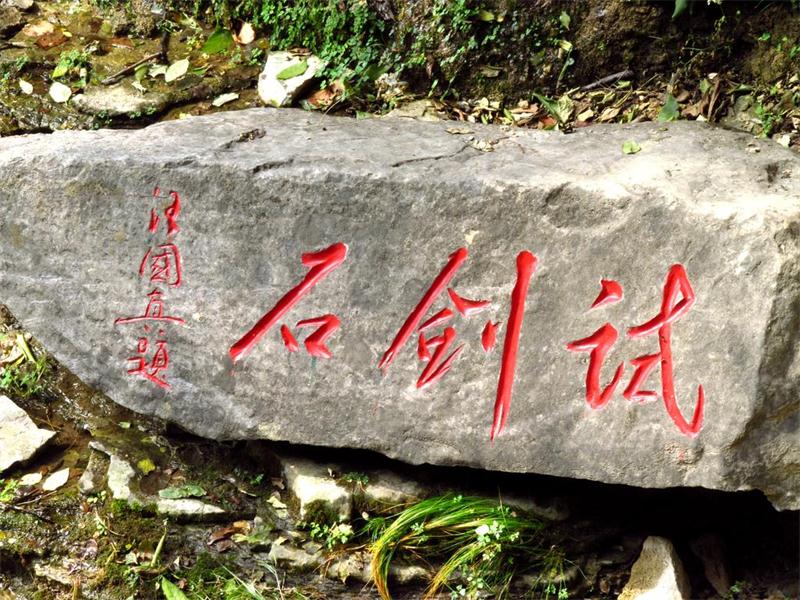 试剑石
汪国真题